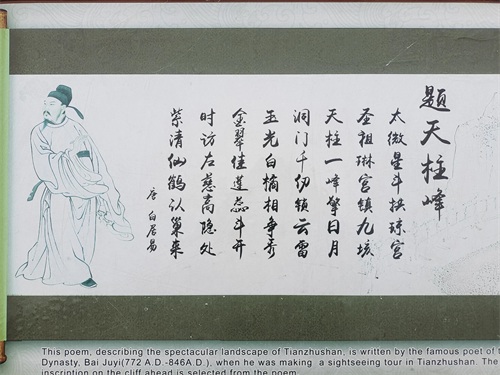 题天柱峰
太微星斗拱琼宫
圣祖琳宫镇九垓
天柱一峰擎日月
洞门千仞锁云雷
玉光白橘相争秀
金翠佳莲蕊斗开
时访左慈高隐处
紫清仙鹤认巢来
唐 白居易
This poem, describing the spectacular landscape of Tianzhushan, is written by the famous poet of
Dynasty, Bai Juyi(772 A.D.-846A.D.), when he was making a sightseeing tour in Tianzhushan. The
inscription on the cliff ahead is selected from the poem.